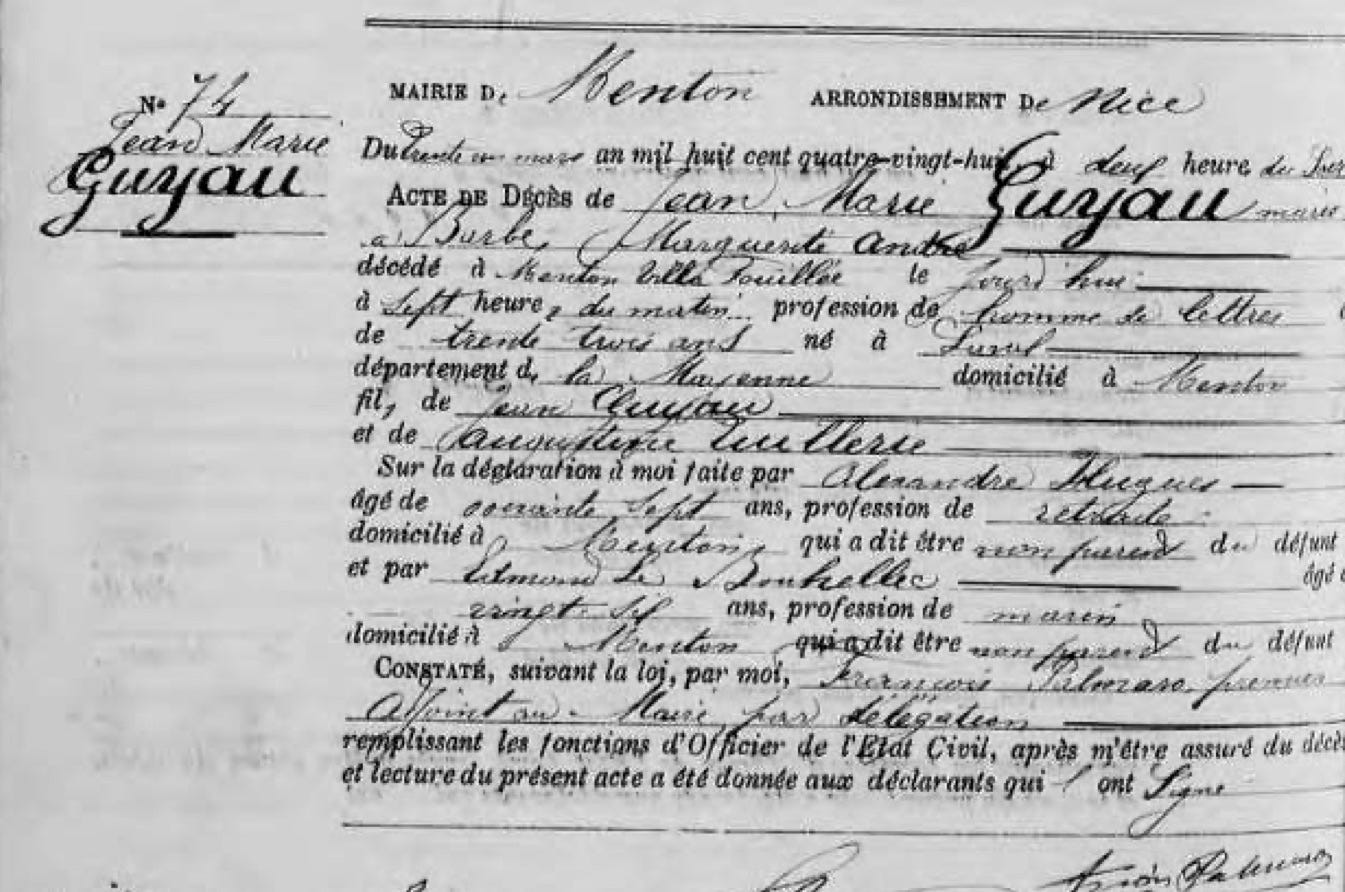 No 74
Jean Marie
Guyau
MAIRIE De Menton ARRONDISSEMENT De Nice
Du trente un mars an mil huit cent quatre-vingt-huit, à deux heure, du
ACTE DE DÉCÈS de Jean, Marie Guyau marié
a Barbe, Marguerite André
décédé à Menton Villa Fouillée le jourd'hui
à Sept heure, du matin profession de homme de lettres
de trente trois ans né à Laval
département de la Mayenne domicilié à Menton
fils de Jean Guyau
et de augustine Tuillerie
Sur la déclaration à moi faite par Alexandre Hugues
âgé de Sept ans, profession de retraité
domicilié à Menton, qui a dit être non parent du défunt
et par Edmond Le âgé
vingt-six ans, profession de marin
domicilié à Menton qui a dit être non parent du défunt
CONSTATÉ, suivant la loi, par moi, François Palmaro, premier
Adjoint au Maire, par délégation
remplissant les fonctions d'Officier de l'Etat Civil, après m'être assuré du décès
et lecture du présent acte a été donnée aux déclarants qui ont Signé
Palmaro